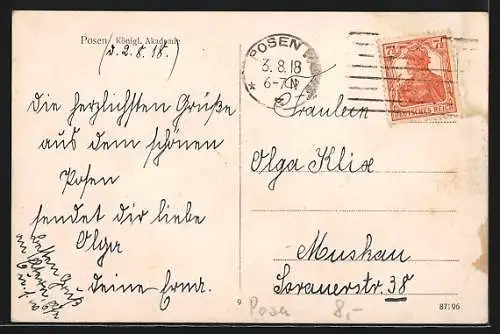 Posen Königl. Akademie
(d. 2. 8. 18.)
Die herzlichsten Grüße
aus dem schönen
Posen
sendet dir liebe
Olga
deine Erna.
besten Gruß
an
POSEN
3.8.18
6-7 N
7½ 7½
DEUTSCHES REICH
Fräulein
Olga Klix
Muskau
Sorauerstraße 38
9
Posen 8,-
87196